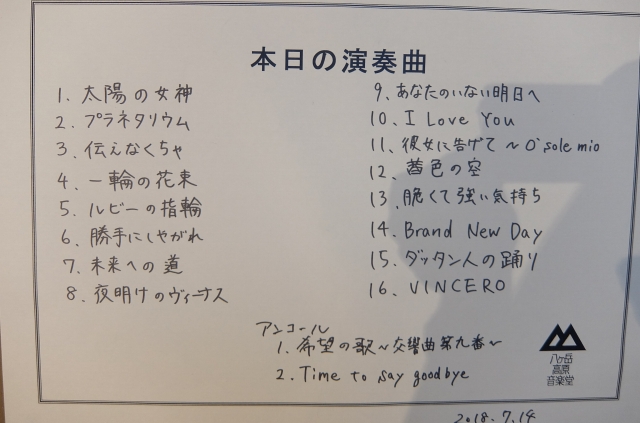 本日の演奏曲
1. 太陽の女神
2. プラネタリウム
3. 伝えなくちゃ
4. 一輪の花束
5. ルビーの指輪
6. 勝手にしやがれ
7. 未来への道
8. 夜明けのヴィーナス
9、あなたのいない明日へ
10、I Love You
11、彼女に告げて ~ O'sole mio
12、茜色の空
13、脆くて強い気持ち
14、Brand New Day
15、ダッタン人の踊り
16、VINCERO
アンコール
1. 希望の歌~交響曲第九番~
2. Time to say goodbye
八ヶ岳
高原
音楽堂
2018.7.14